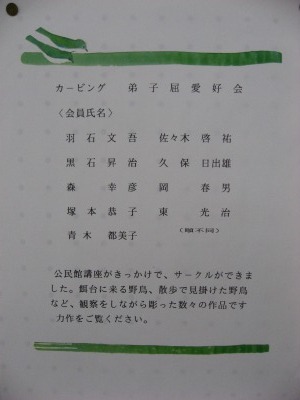 カービング　弟子屈愛好会
〈会員氏名〉
羽石文吾　佐々木啓祐
黒石昇治　久保日出雄
森　幸彦　岡　春男
塚本恭子　東　光治
青木都美子　（順不同）
公民館講座がきっかけで、サークルができま
した。餌台に来る野鳥、散歩で見掛けた野鳥
など、観察をしながら彫った数々の作品です
力作をご覧ください。